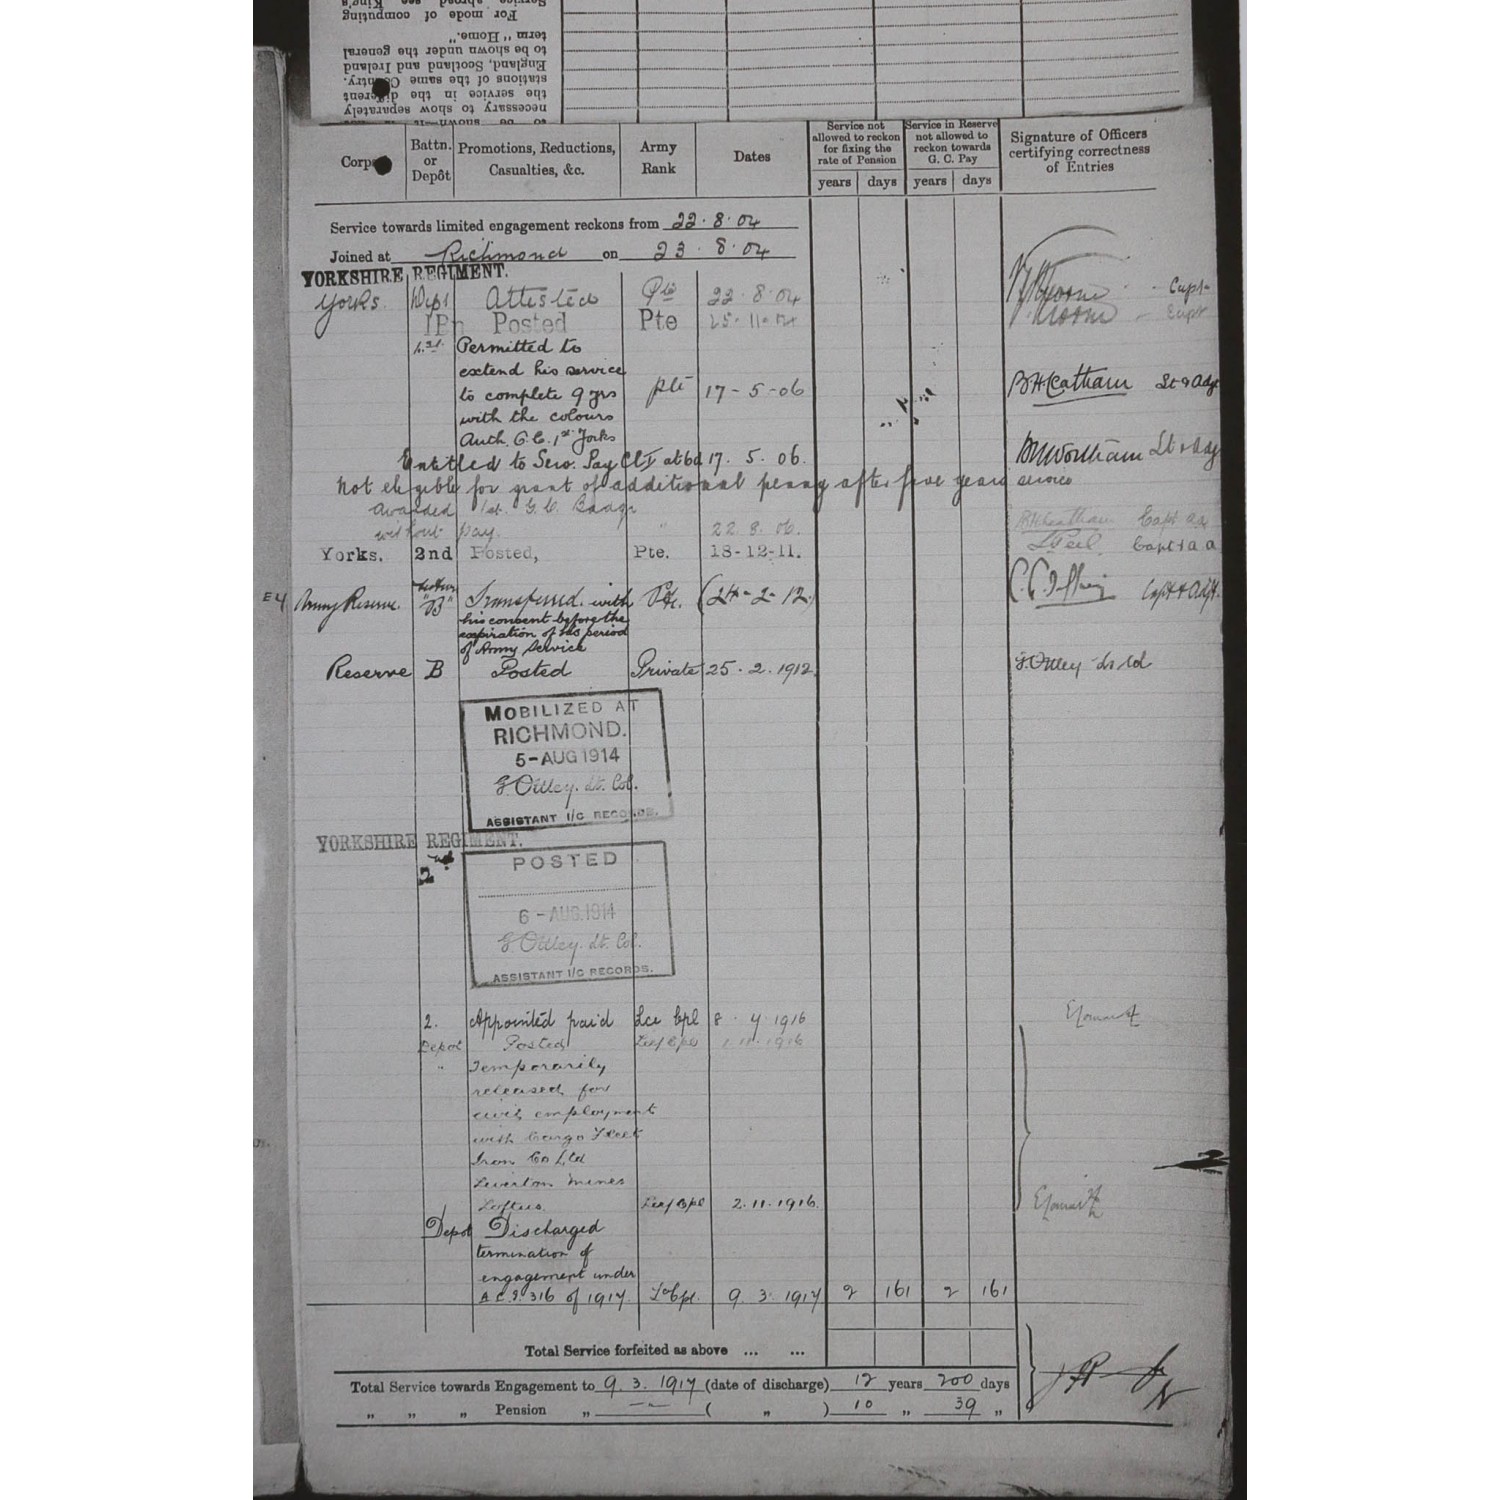 Service abroad see King's
For mode of computing
term "Home."
to be shown under the general
England, Scotland and Ireland
stations of the same Country.
the service in the different
necessary to show separately
to be shown it is not
Corps
Battn. or Depôt
Promotions, Reductions, Casualties, &c.
Army Rank
Dates
Service not allowed to reckon for fixing the rate of Pension
Service in Reserve not allowed to reckon towards G. C. Pay
Signature of Officers certifying correctness of Entries
years days years days
Service towards limited engagement reckons from 22.8.04
Joined at Richmond on 23.8.04
YORKSHIRE REGIMENT.
Yorks. Depot Attested Pte 22.8.04 Capt
Posted Pte 25-11-04 Capt
1st Permitted to
extend his service
to complete 9 yrs Pte 17-5-06 Lt & Adjt
with the colours
Auth. O.C. 1st Yorks
Entitled to Serv. Pay Cl I at 6d 17. 5. 06. Lt & Adjt
Not eligible for grant of additional penny after five years service
Awarded 1st. G.C. Badge
without pay. " 22.8.06. Capt
Yorks. 2nd Posted, Pte. 18-12-11. Capt & a a
Army Reserve. Section "B" Transferred with Pte. (24-2-12.) Capt & Adjt.
his consent before the
expiration of his period
of Army Service
Reserve B Posted Private 25.2.1912. G. Ottley Lt Col
MOBILIZED AT
RICHMOND.
5-AUG 1914
G. Ottley. Lt. Col.
ASSISTANT I/C RECORDS.
YORKSHIRE REGIMENT.
2nd
POSTED
6-AUG.1914
G Ottley. Lt. Col.
ASSISTANT I/C RECORDS.
2. Appointed paid Lce Cpl 8.4.1916
Depot Posted Lce/Cpl 2.11.1916
" Temporarily
released for
civil employment
with Cargo Fleet
Iron Co Ltd
Liverton Mines
Loftus. Lce/Cpl 2.11.1916.
Depot Discharged
termination of
engagement under
A.C.I. 316 of 1917. L/Cpl. 9.3.1917 2 161 2 161
Total Service forfeited as above ... ...
Total Service towards Engagement to 9.3.1917 (date of discharge) 12 years 200 days
" " " Pension " ( " ) 10 " 39 "